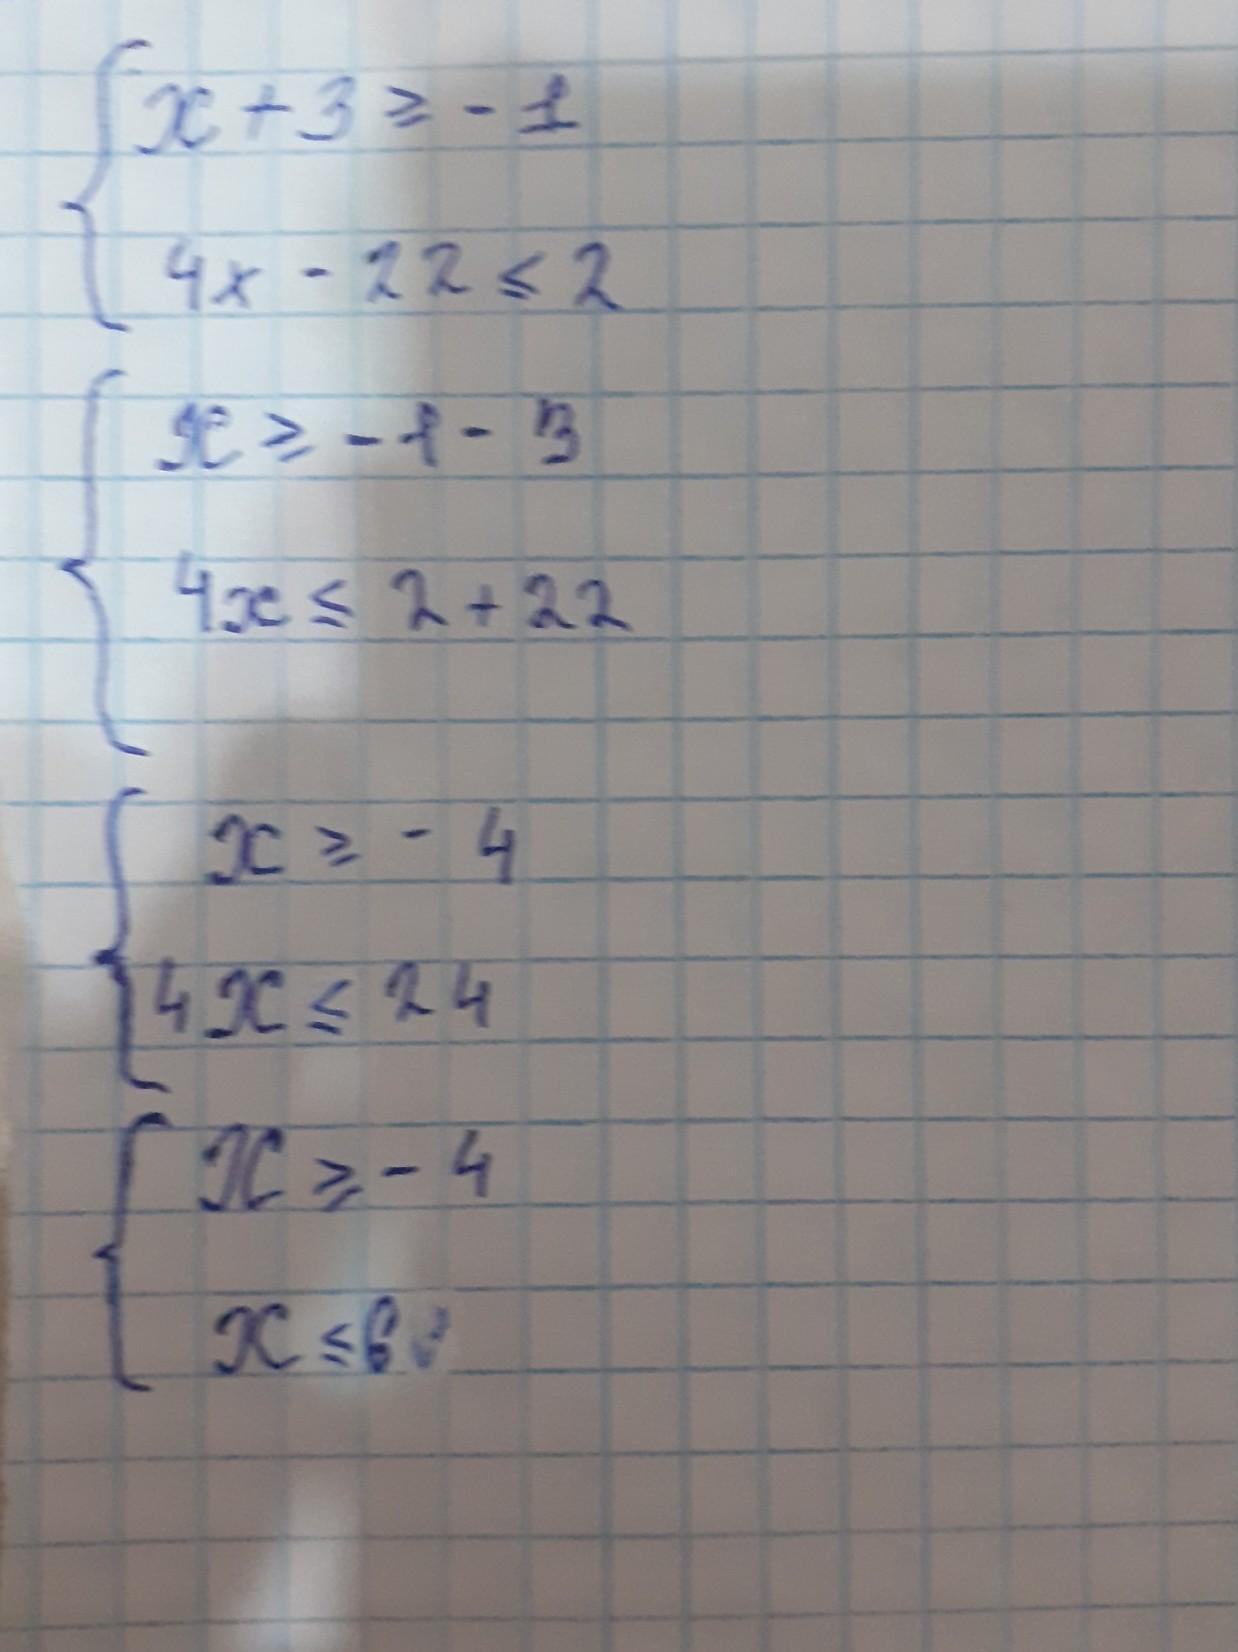 x + 3 ≥ - 1
4x - 22 ≤ 2
x ≥ - 1 - 3
4x ≤ 2 + 22
x ≥ - 4
4x ≤ 24
x ≥ - 4
x ≤ 6